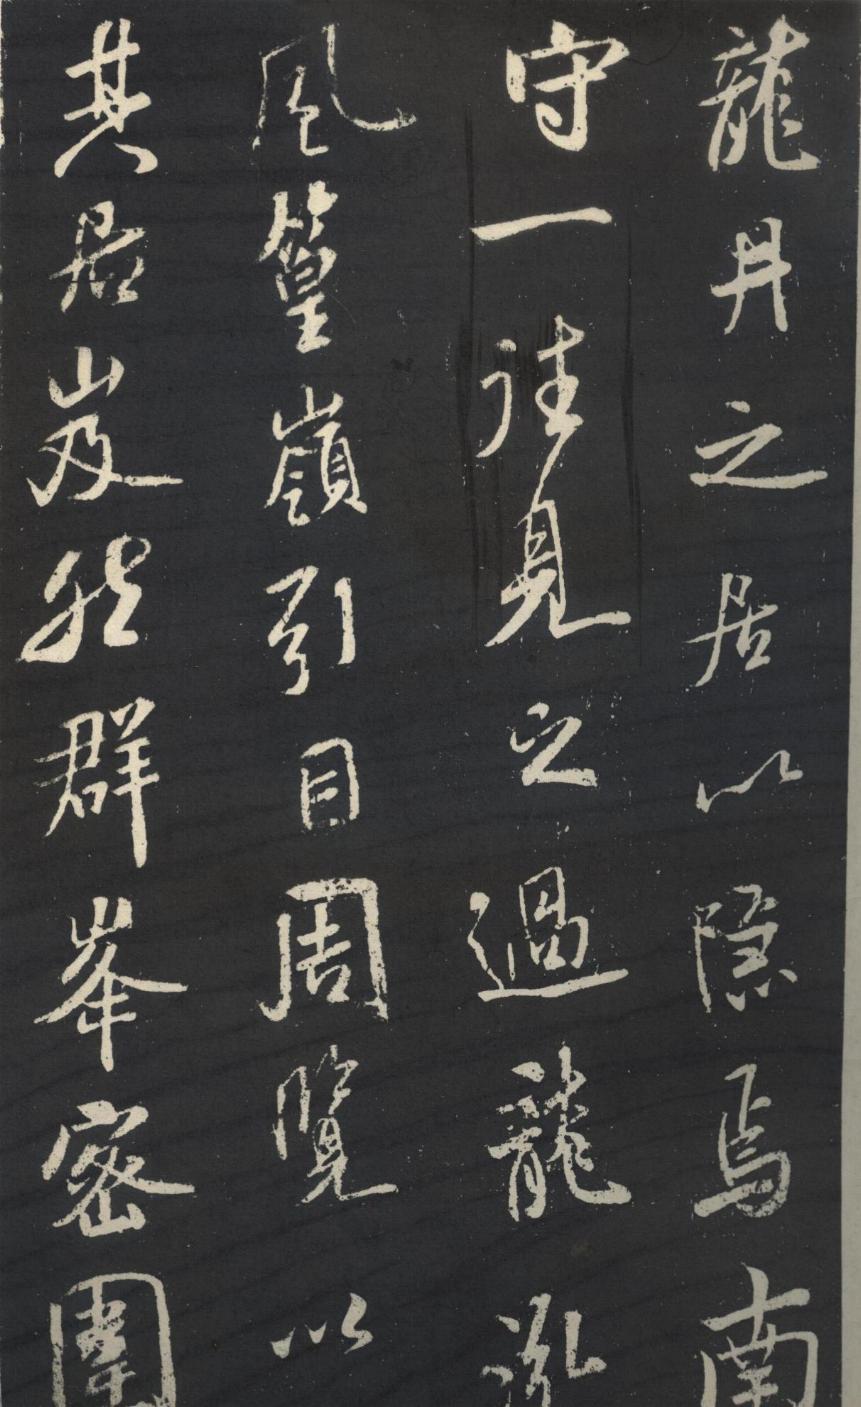 龍丹之居以隱焉南
守一往見之過龍泓
風篁嶺引目周覽以
其居岌然群峯密圍